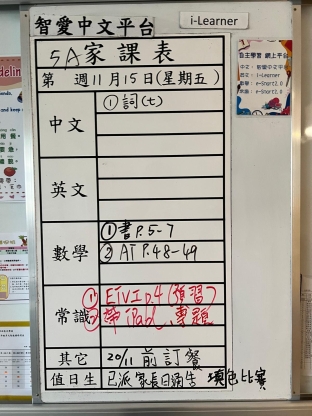 智愛中文平台
i-Learner
5A家課表
第 週11月15日(星期五)
中文
①詞(七)
英文
數學
①書P.5-7
②AT P.48-49
常識
①ETV工p.4(預習)
②帶iPad、專題
其它
20/11 前訂餐
值日生
已派家長日通告 填色比賽
自主學習 網上平台
中文:智愛中文平台
英文:i-Learner
數學:e-Smart2.0
常識:e-Smart2.0